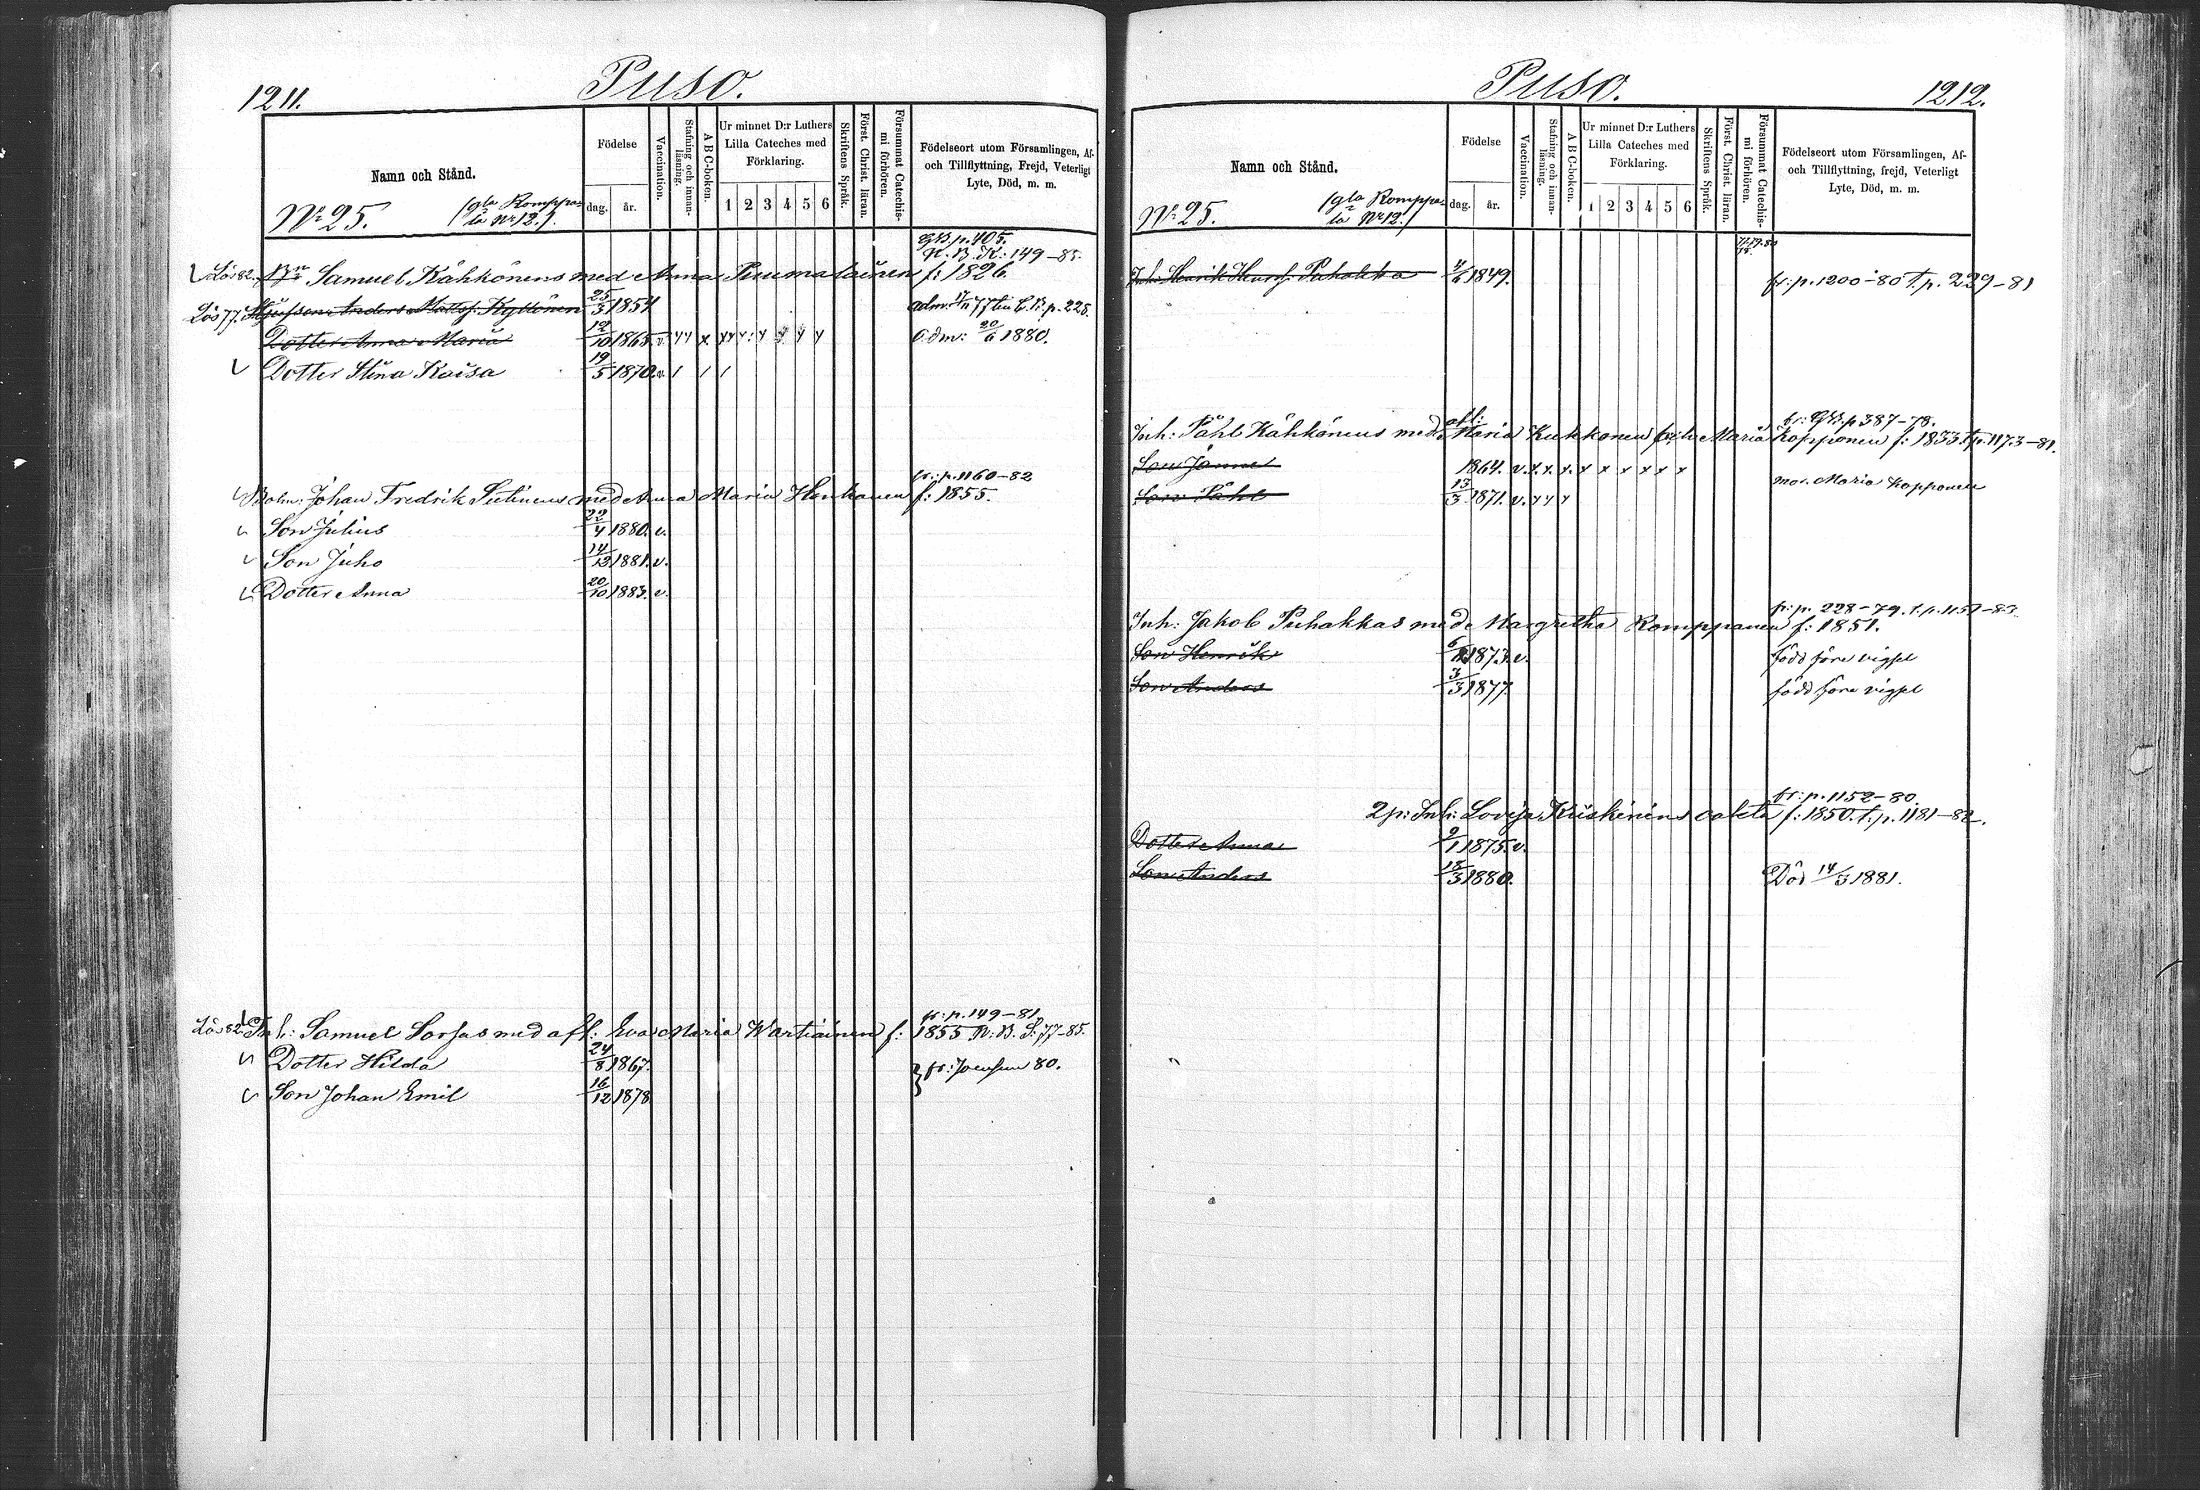 1211.
Puso.
Namn och Stånd.
Födelse
dag. år.
Vaccination.
Stafning och innanläsning.
ABC-boken.
Ur minnet D:r Luthers Lilla Cateches med Förklaring.
1 2 3 4 5 6
Skriftens Språk.
Först. Christ. läran.
Försummat Catechismi förhören.
Födelseort utom Församlingen, Af- och Tillflyttning, Frejd, Veterligt Lyte, Död, m. m.
№ 25. (gla Romppala № 12.)
GB. p. 405.
N. B. K: 149-85.
Lös 82. Samuel Kähkönens med Anna Puumalainen f: 1826.
Lös 77. Anders Mattsf. Kyllönen 25/3 1854 adm: 77 p. 225.
Dotter Anna Maria 12/10 1865 v. adm: 20/6 1880.
Dotter Stina Kaisa 19/5 1870 v. / / /
fr: p. 1160-82
Bolm: Johan Fredrik Sutinens med Anna Maria Henkanen f: 1855.
Son Julius 22/4 1880. v.
Son Juho 14/12 1881. v.
Dotter Anna 20/10 1883. v.
fr: p. 149-81
Lös 82 Inh: Samuel Sorsas med afl: Eva Maria Wartiainen f: 1855 N. B. S: 77-85.
Dotter Hilda 24/8 1867.
} fr: Joensuu 80.
Son Johan Emil 16/12 1878
Puso.
1212.
Namn och Stånd.
Födelse
dag. år.
Vaccination.
Stafning och innanläsning.
ABC-boken.
Ur minnet D:r Luthers Lilla Cateches med Förklaring.
1 2 3 4 5 6
Skriftens Språk.
Först. Christ. läran.
Försummat Catechismi förhören.
Födelseort utom Församlingen, Af- och Tillflyttning, frejd, Veterligt Lyte, Död, m. m.
№ 25. (gla Romppala № 12.)
Inh: Henrik Henrsf. Puhakka 1849. fr: p. 1200-80 t. p. 229-81
fr: GB. p 387-78.
Inh: Påhl Kähkönens med afl: Maria Kukkonen och Maria Kopponen f: 1833. t. p. 1173-81.
Son Janne 1864. v. x. x. x. x x x x x x
mor. Maria Kopponen
Son Påhl 13/3 1871. v. x x x
fr: p. 228-79. t. p. 1157-83.
Inh: Jakob Puhakkas med Margretha Romppanen f: 1851.
Son Henrik 1873. v. född före vigsel
Son Anders 3/3 1877 född före vigsel
fr: p. 1152-80.
2 p: Inh: Lovisa Kiiskinens oäkta f: 1850. t. p. 1181-82.
Dotter Anna 2/1 1875. v.
Son Anders 13/3 1880. Död 14/3 1881.